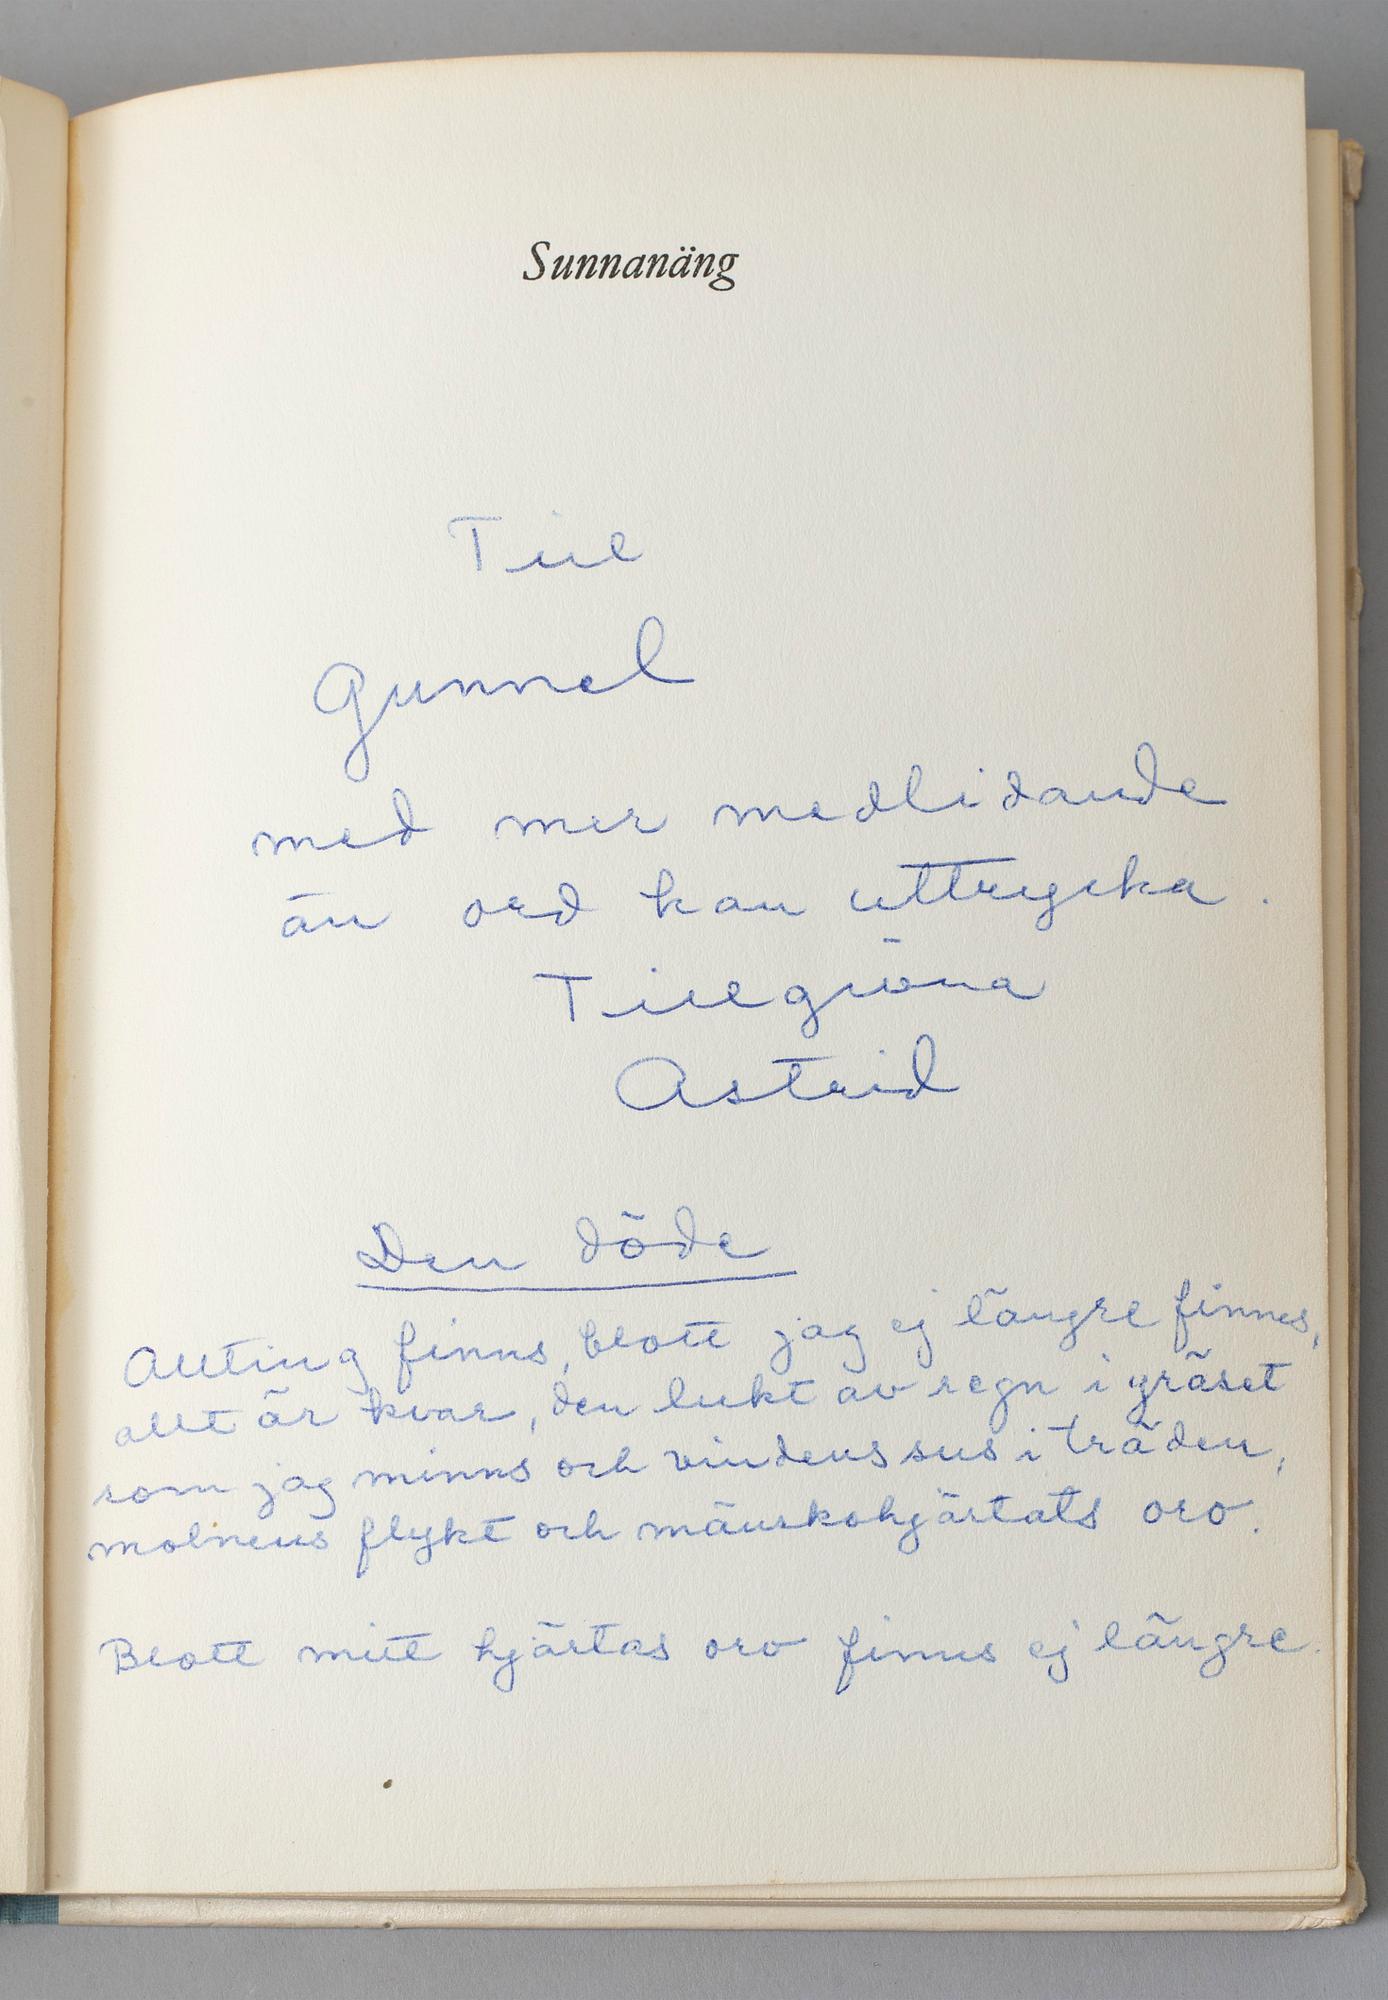 Sunnanäng
Till
Gunnel
med mer medlidande
än ord kan uttrycka.
Tillgivna
Astrid
Den döde
Allting finns, blott jag ej längre finnes,
allt är kvar, den lukt av regn i gräset
som jag minns och vindens sus i träden,
molnens flykt och mänskohjärtats oro.
Blott mitt hjärtas oro finns ej längre.